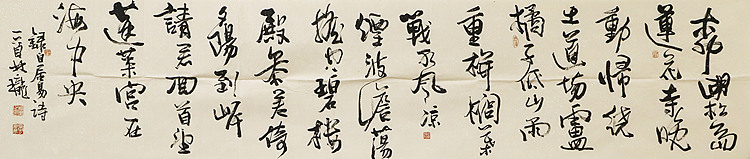 柳湖松島
蓮花寺晚
動歸橈
出道場盧
橘子低山雨
重栟櫚葉
戰水風凉
煙波澹蕩
摇空碧樓
殿參差倚
夕陽到岸
請君回首望
蓬萊宮在
海中央
錄白居易詩